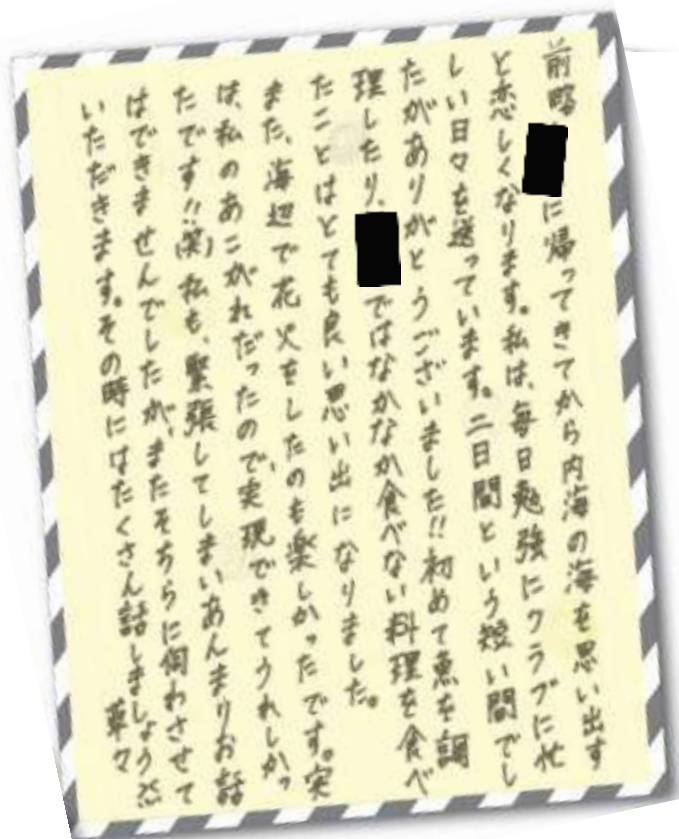 前略
に帰ってきてから内海の海を思い出す
と恋しくなります。私は、毎日勉強にクラブに忙
しい日々を送っています。二日間という短い間でし
たがありがとうございました!!初めて魚を調
理したり、
ではなかなか食べない料理を食べ
たことはとても良い思い出になりました。
また、海辺で花火をしたのも楽しかったです。実
は、私のあこがれだったので、実現できてうれしかっ
たです!!(笑)私も、緊張してしまいあんまりお話
はできませんでしたが、またそちらに伺わさせて
いただきます。その時にはたくさん話しましょう
草々